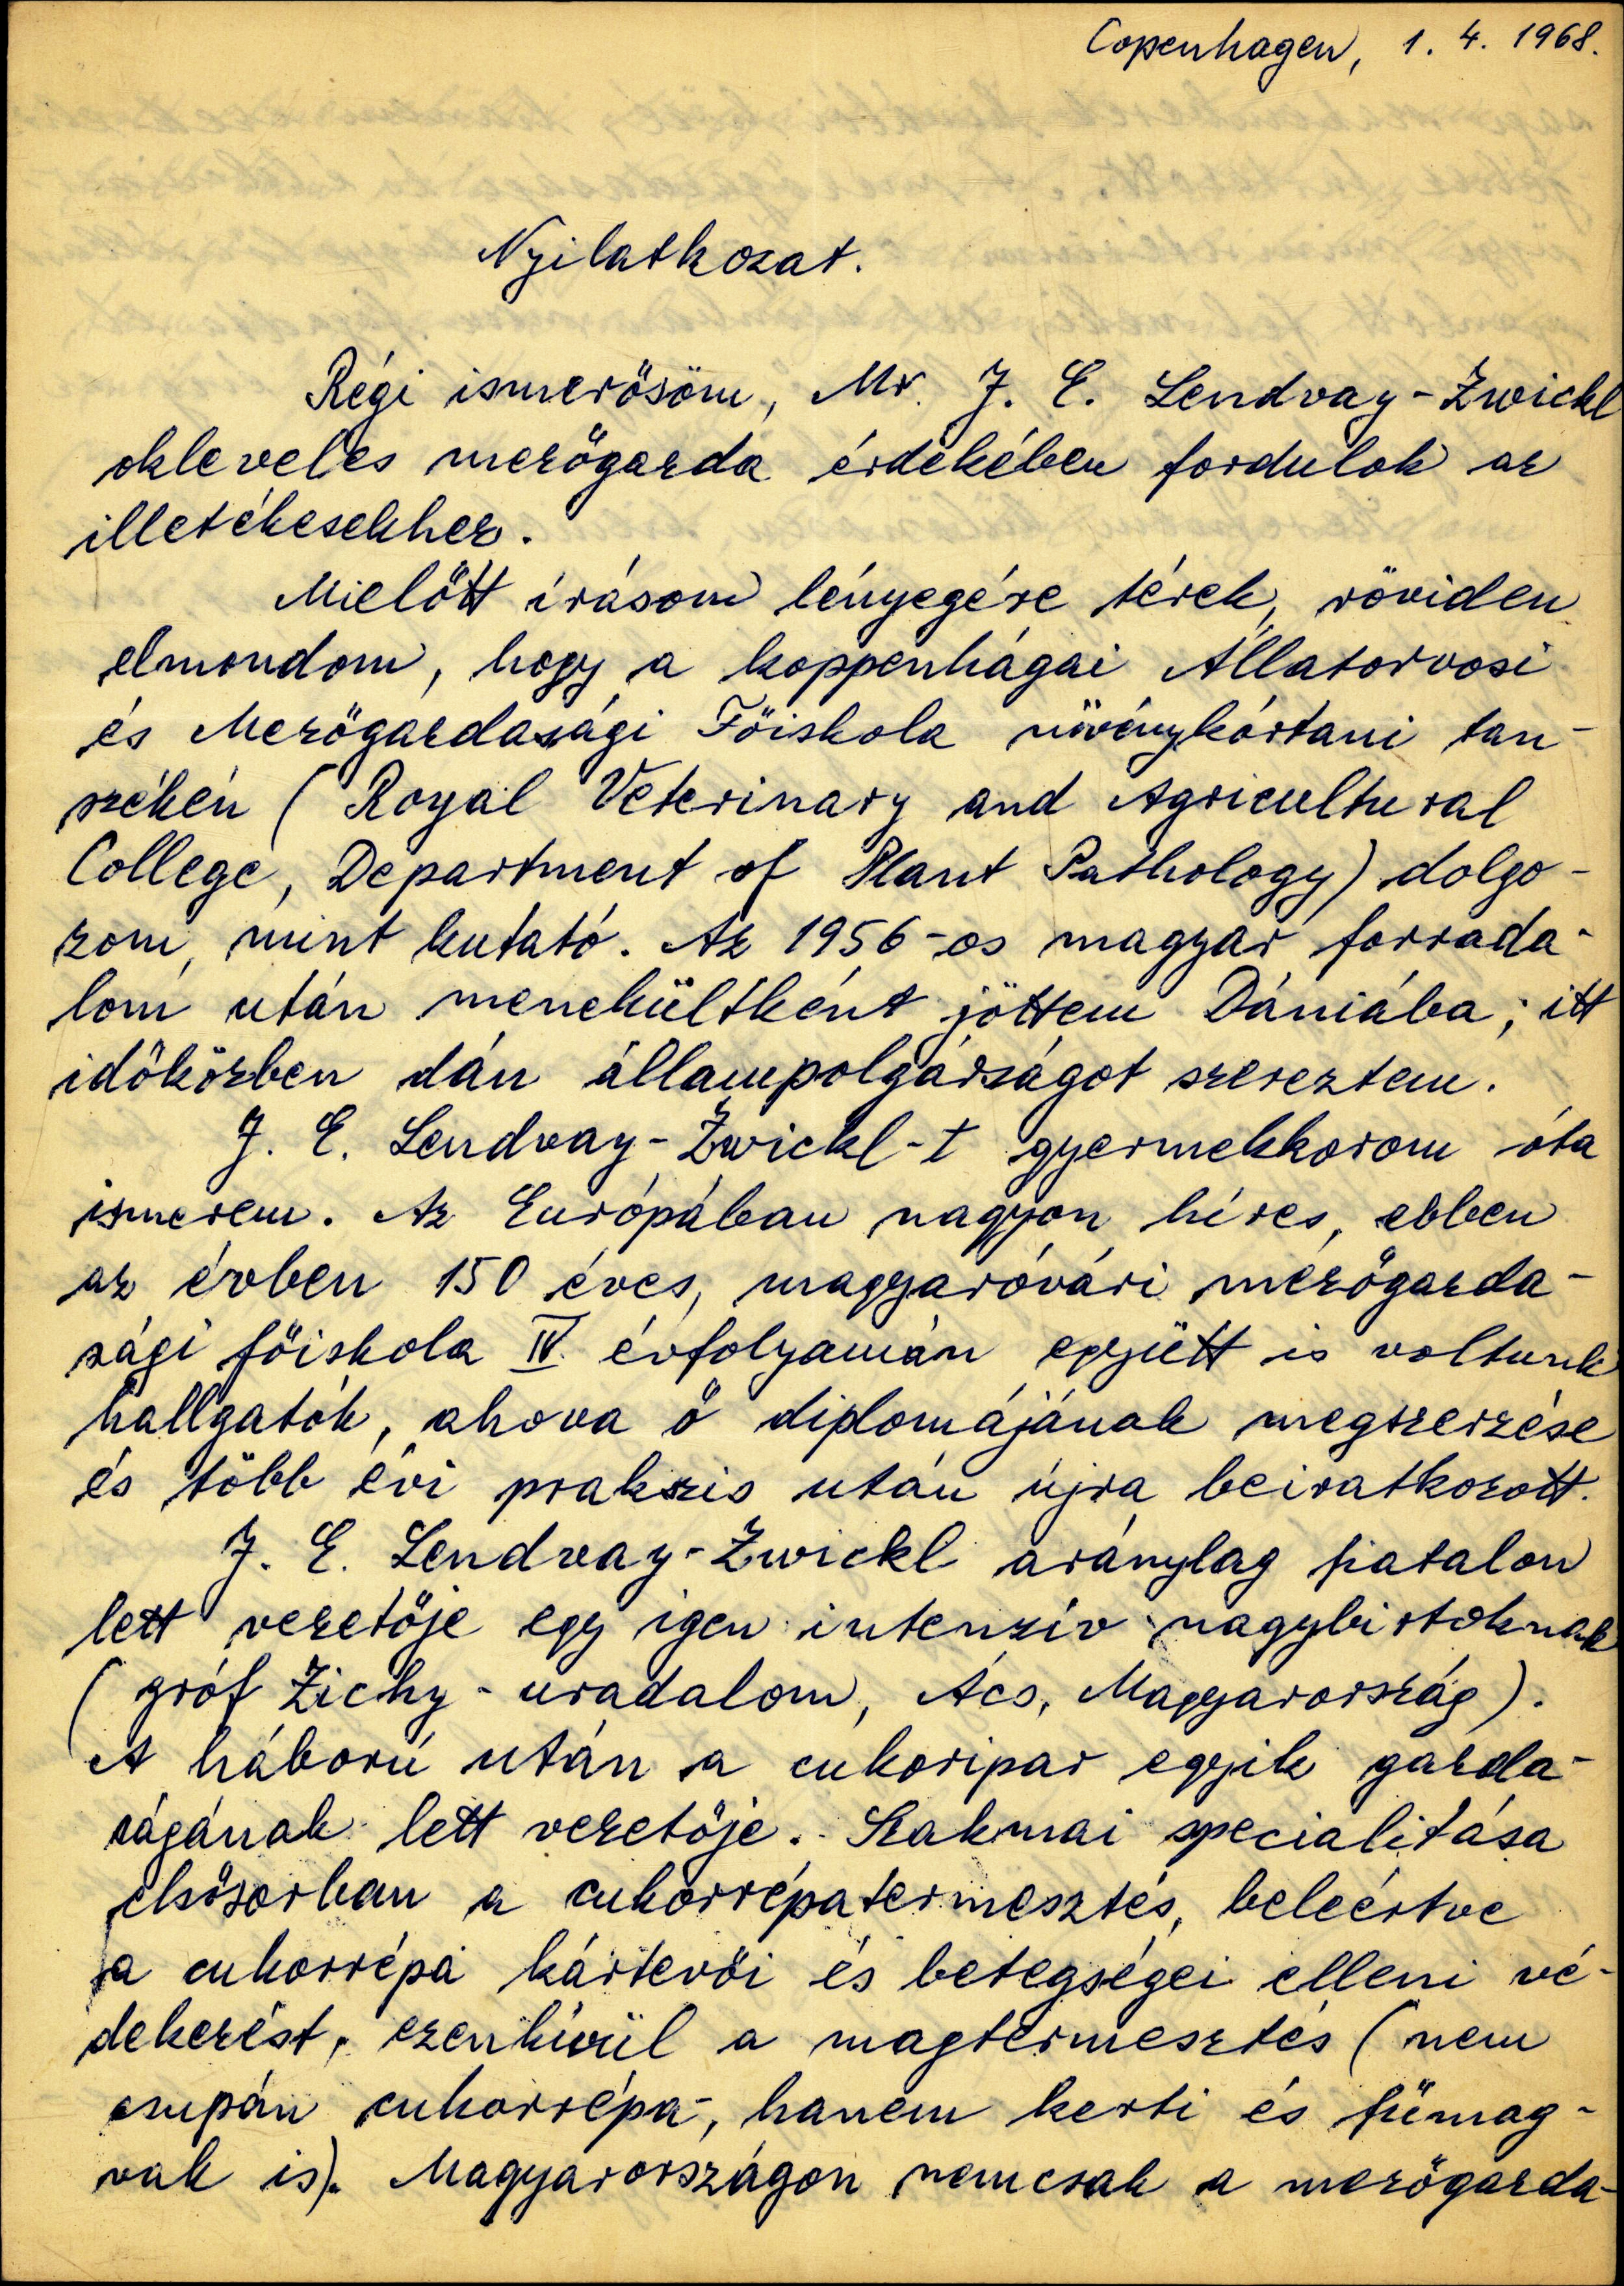 Copenhagen, 1. 4. 1968.
Nyilatkozat.
Régi ismerősöm, Mr. J. E. Lendvay-Zwickl
okleveles mezőgazda érdekében fordulok az
illetékesekhez.
Mielőtt írásom lényegére térek, röviden
elmondom, hogy a koppenhágai Állatorvosi
és Mezőgazdasági Főiskola növénykórtani tan-
székén (Royal Veterinary and Agricultural
College, Department of Plant Pathology) dolgo-
zom, mint kutató. Az 1956-os magyar forrada-
lom után menekültként jöttem Dániába; itt
időközben dán állampolgárságot szereztem.
J. E. Lendvay-Zwickl-t gyermekkorom óta
ismerem. Az Európában nagyon híres, ebben
az évben 150 éves, magyaróvári mezőgazda-
sági főiskola IV. évfolyamán együtt is voltunk
hallgatók, ahova ő diplomájának megszerzése
és több évi prakszis után újra beiratkozott.
J. E. Lendvay-Zwickl aránylag fiatalon
lett vezetője egy igen intenzív nagybirtoknak
(gróf Zichy-uradalom, Ács, Magyarország).
A háború után a cukoripar egyik gazda-
ságának lett vezetője. Szakmai specialitása
elsősorban a cukorrépatermesztés, beleértve
a cukorrépa kártevői és betegségei elleni vé-
dekezést, ezenkívül a magtermesztés (nem
csupán cukorrépa-, hanem kerti és fűmag-
vak is). Magyarországon nemcsak a mezőgazda-